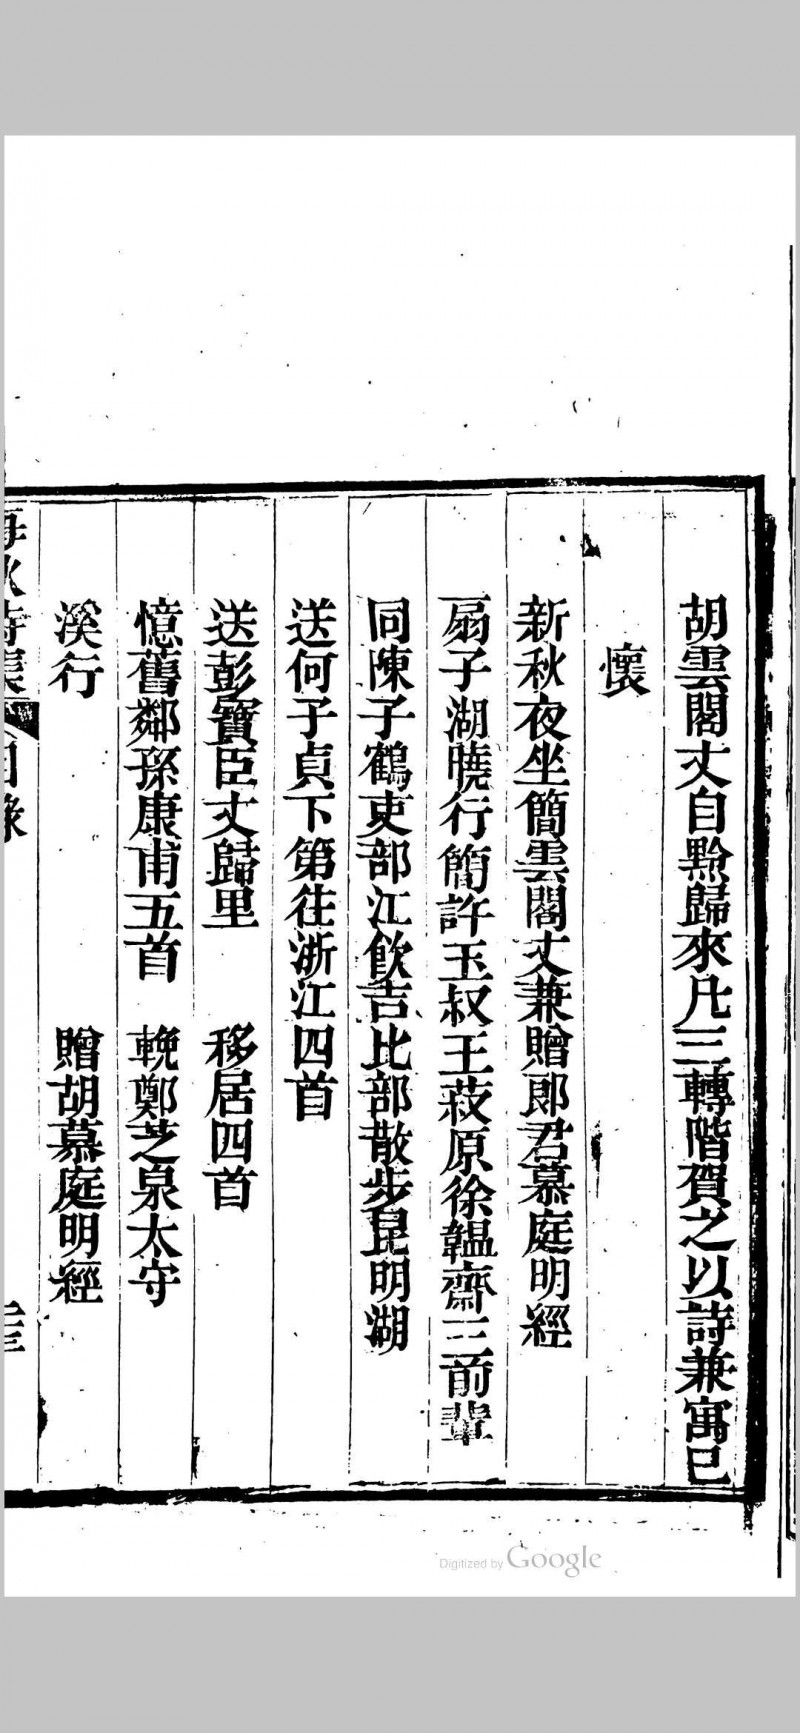 胡雲閣丈自黔歸來凡三轉階賀之以詩兼寓已
懷
新秋夜坐簡雲閣丈兼贈郎君慕庭明經
扇子湖曉行簡許玉叔王菽原徐韞齋三前輩
同陳子鶴吏部江飲吉比部散步昆明湖
送何子貞下第往浙江四首
送彭寶臣丈歸里　移居四首
憶舊鄰孫康甫五首　輓鄭芝泉太守
溪行　贈胡慕庭明經
海秋詩集　目錄
Digitized by Google